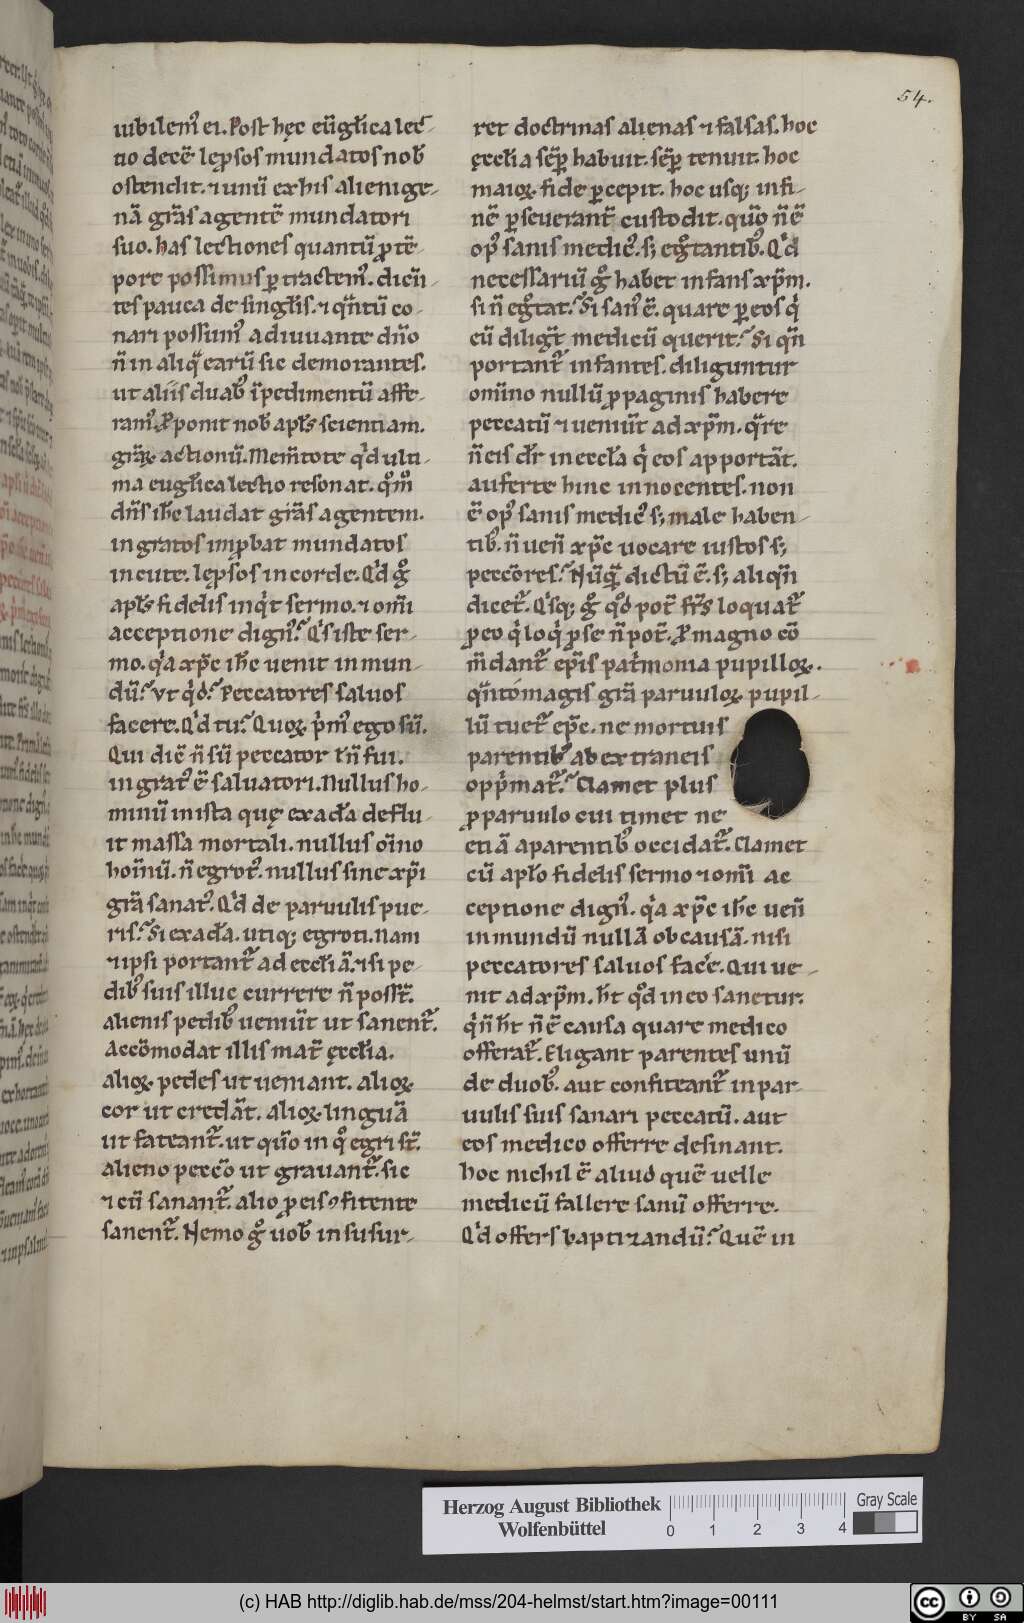 54.
iubilem᷒ ei. Post hęc eũgłica lec-
tio decẽ lep̱sos mundatos nob̃
ostendit. ⁊ unũ ex his alienige-
nã grãs agentẽ mundatori
suo. has lectiones quantũ ꝓ tẽ-
pore possimus ꝑtractem᷒. dicẽn-
tes pauca de singlis. ⁊ q̃ntũ co-
nari possum᷒ adiuuante dño
ñ in aliq̃ earũ sic demorantes.
ut aliis duab᷒ ĩpedimentũ affe-
ram᷒. Ꝓponit nob̃ apłs scientiam.
griãꝝ actionũ. Mem̃tote qd̓ ulti-
ma eugłica lectio resonat. q̊m̊
dñs ih̃c laudat grãs agentem.
ingratos improbat mundatos
in cute. lep̱sos in corde. Qd̓ g̊
apłs fidelis inqt̓ sermo. ⁊ om̃i
acceptione dign᷒? Qs̓ iste ser-
mo. qa̓ xp̃c ih̃c uenit in mun-
dũ? vt qd̓? Peccatores saluos
facere. Qd̓ tu? Quoꝝ p̓m᷒ ego sũ.
Qui dic̃ ñ sũ peccator ł ñ fui.
ingrat᷒ ẽ saluatori. Nullus ho-
minũ in ista quę ex adã deflu-
it massa mortali. nullus oĩno
hoĩnũ. ñ egrot᷒. nullus sine xp̃i
grã sanat᷒. Qd̓ de paruulis pue-
ris? Si ex adã. utiq; egroti. Nam
⁊ ipsi portant̃ ad eccłiã. ⁊ si pe-
dib᷒ suis illuc currere ñ posst̃.
alienis pedib᷒ ueniũt ut sanent̃.
Accõmodat illis mat̃ ęccłia.
alioꝝ pedes ut ueniant. alioꝝ
cor ut credãt. alioꝝ linguã
ut fateant̃. ut qũo in q̊ egri st̃.
alieno peccõ ut grauant̃. sic
⁊ cũ sanant̃. alio ꝓ eis ꝯfitente
sanent̃. Nemo g̊ uob̃ in susur-
ret doctrinas alienas ⁊ falsas. hoc
ęccłia sẽꝑ habuit. sẽꝑ tenuit. hoc
maioꝝ fide ꝑcepit. hoc usq; in fi-
nẽ ꝑseuerant̃ custodit. qũo ñ ẽ
op᷒ sanis medic᷒. s; eg̊tantib᷒. Qd̓
necessariũ g̊ habet infans xp̃m.
si ñ eg̊tat? Si san᷒ ẽ. quare ꝑ eos q̓
cũ diligt̃ medicũ querit? Si qñ
portant̃ infantes. diliguntur
omĩno nullũ ꝓpaginis habere
peccatũ ⁊ ueniũt ad xp̃m. q̃re
ñ eis dr̃ in eccła q̓ eos apportãt.
auferte hinc innocentes. non
ẽ op᷒ sanis medic᷒ s; male haben-
tib᷒. ñ ueñ xp̃c uocare iustos s;
peccõres? Nũq̃ dictũ ẽ. s; aliqñ
dicet̃. Qs̓q; g̊ qd̊ pot̃ frs̃ loquat̃
ꝓ eo q̓ loq̓ ꝓ se ñ pot̃. Ꝓ magno cõ
m̃dant̃ ep̃is pat̓monia pupilloꝝ.
qñto magis grã paruuloꝝ pupil-
lũ tuet̃ ep̃c. ne mortuis
parentib᷒ ab extraneis
opp̓mat̃? Clamet plus
ꝓ paruulo cui timet ne
etiã a parentib᷒ occidat̃. Clamet
cũ apło fidelis sermo ⁊ om̃i ac
ceptione dign᷒. qa̓ xp̃c ih̃c ueñ
in mundũ nullã ob causã. nisi
peccatores saluos facẽe. Qui ue-
nit ad xp̃m. ht̃ qd̊ in eo sanetur.
q̓ ñ ht̃ ñ ẽ causa quare medico
offerat̃. Eligant parentes unũ
de duob᷒. aut confiteant̃ in par-
uulis suis sanari peccatũ. aut
eos medico offerre desinant.
hoc nichil ẽ aliud quẽ uelle
medicũ fallere sanũ offerre.
Qd̓ offers baptizandũ? Quẽ in
Herzog August Bibliothek
Wolfenbüttel
0 1 2 3 4
Gray Scale
(c) HAB http://diglib.hab.de/mss/204-helmst/start.htm?image=00111
cc BY SA